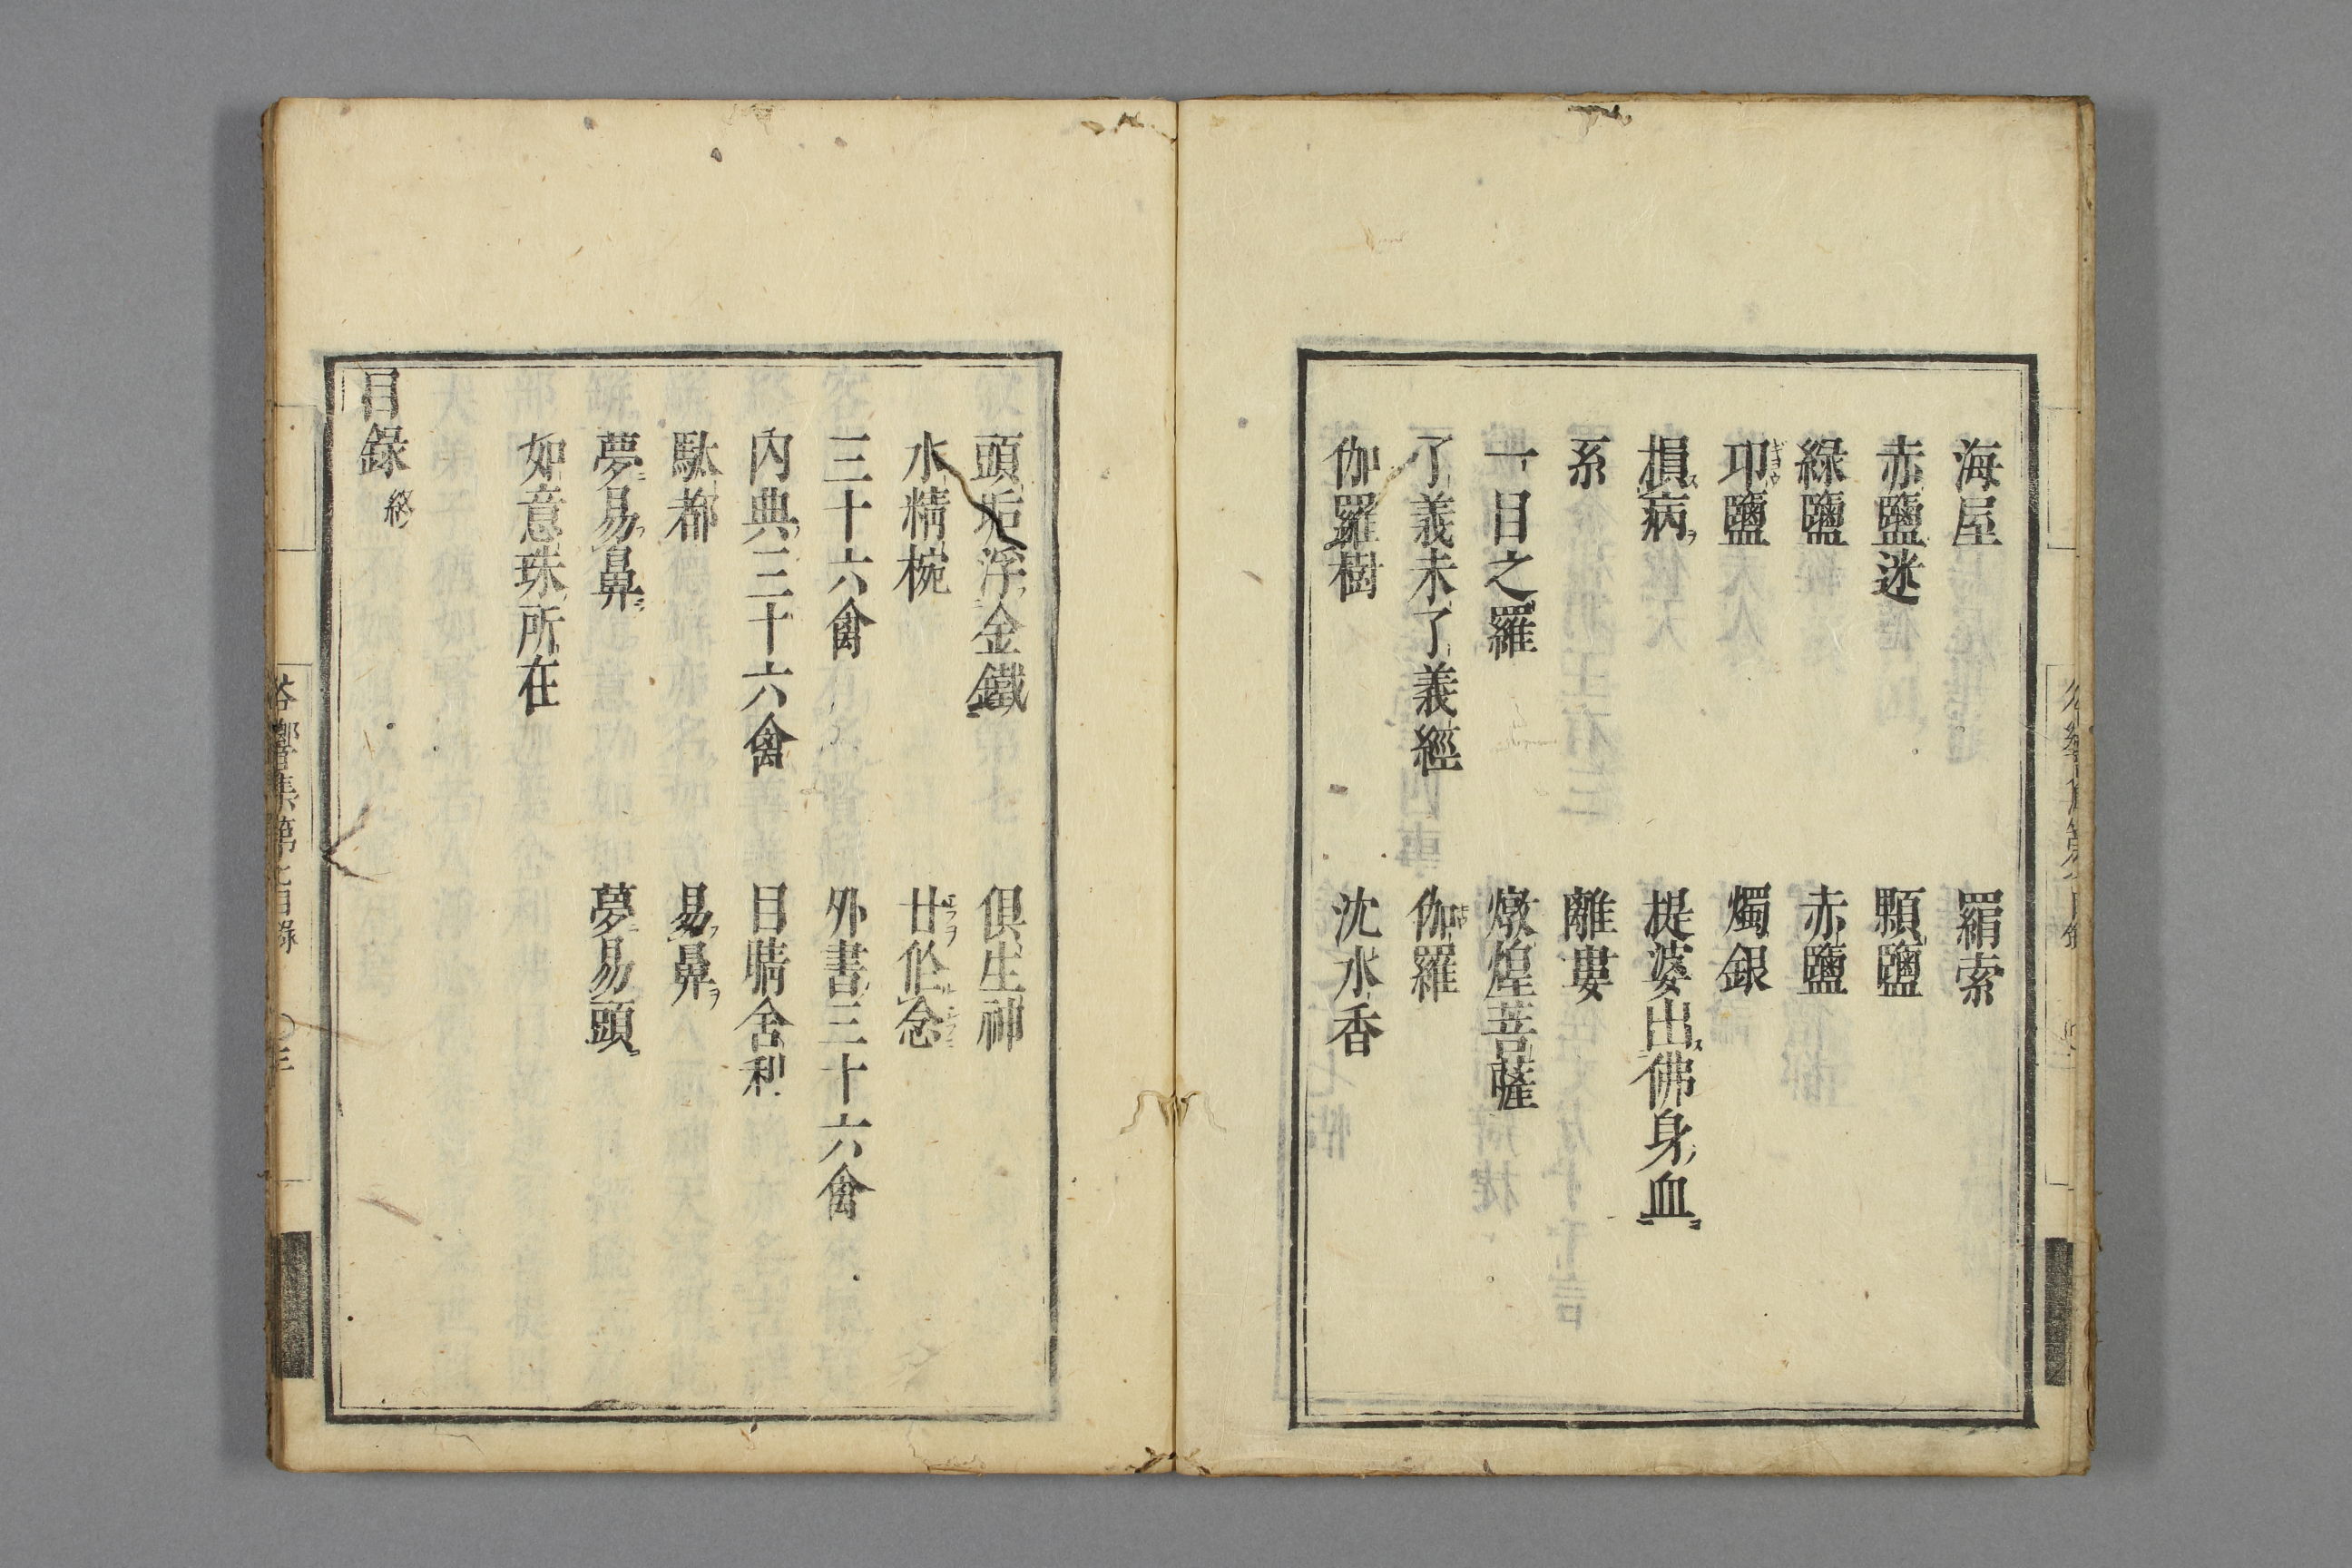 海屋　羂索
赤鹽迷　顆鹽
綠鹽　赤鹽
卭鹽　燭銀
損病　提婆出佛身血
系　離婁
一目之羅　燉煌菩薩
了義未了義經　伽羅
伽羅樹　沈水香
頭垢浮金鐵　俱生神
水精椀　廿伱念
三十六禽　外書三十六禽
內典三十六禽　目睛舍利
馱都　易鼻
夢易鼻　夢易頭
如意珠所在
目錄終
谷響集第七目錄　〇三